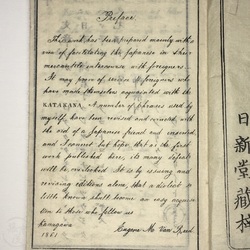 Preface.
This work has been prepared mainly with a
view of facilitating the Japanese in their
mercantile intercourse with foreigners.
It may prove of service to foreigners who
have made themselves acquainted with the
KATAKANA. A number of phrases used by
myself, have been revised and reviewed with
the aid of a Japanese friend and engraved
and I cannot but hope, that as the first
work published here, its many defects
will be overlooked. It is by issuing and
revising editions alone, that a dialect so
little known shall become an easy acquisi-
tion to those who follow us
Kanagawa
1861
Eugene M. Van Reed
日新堂藏